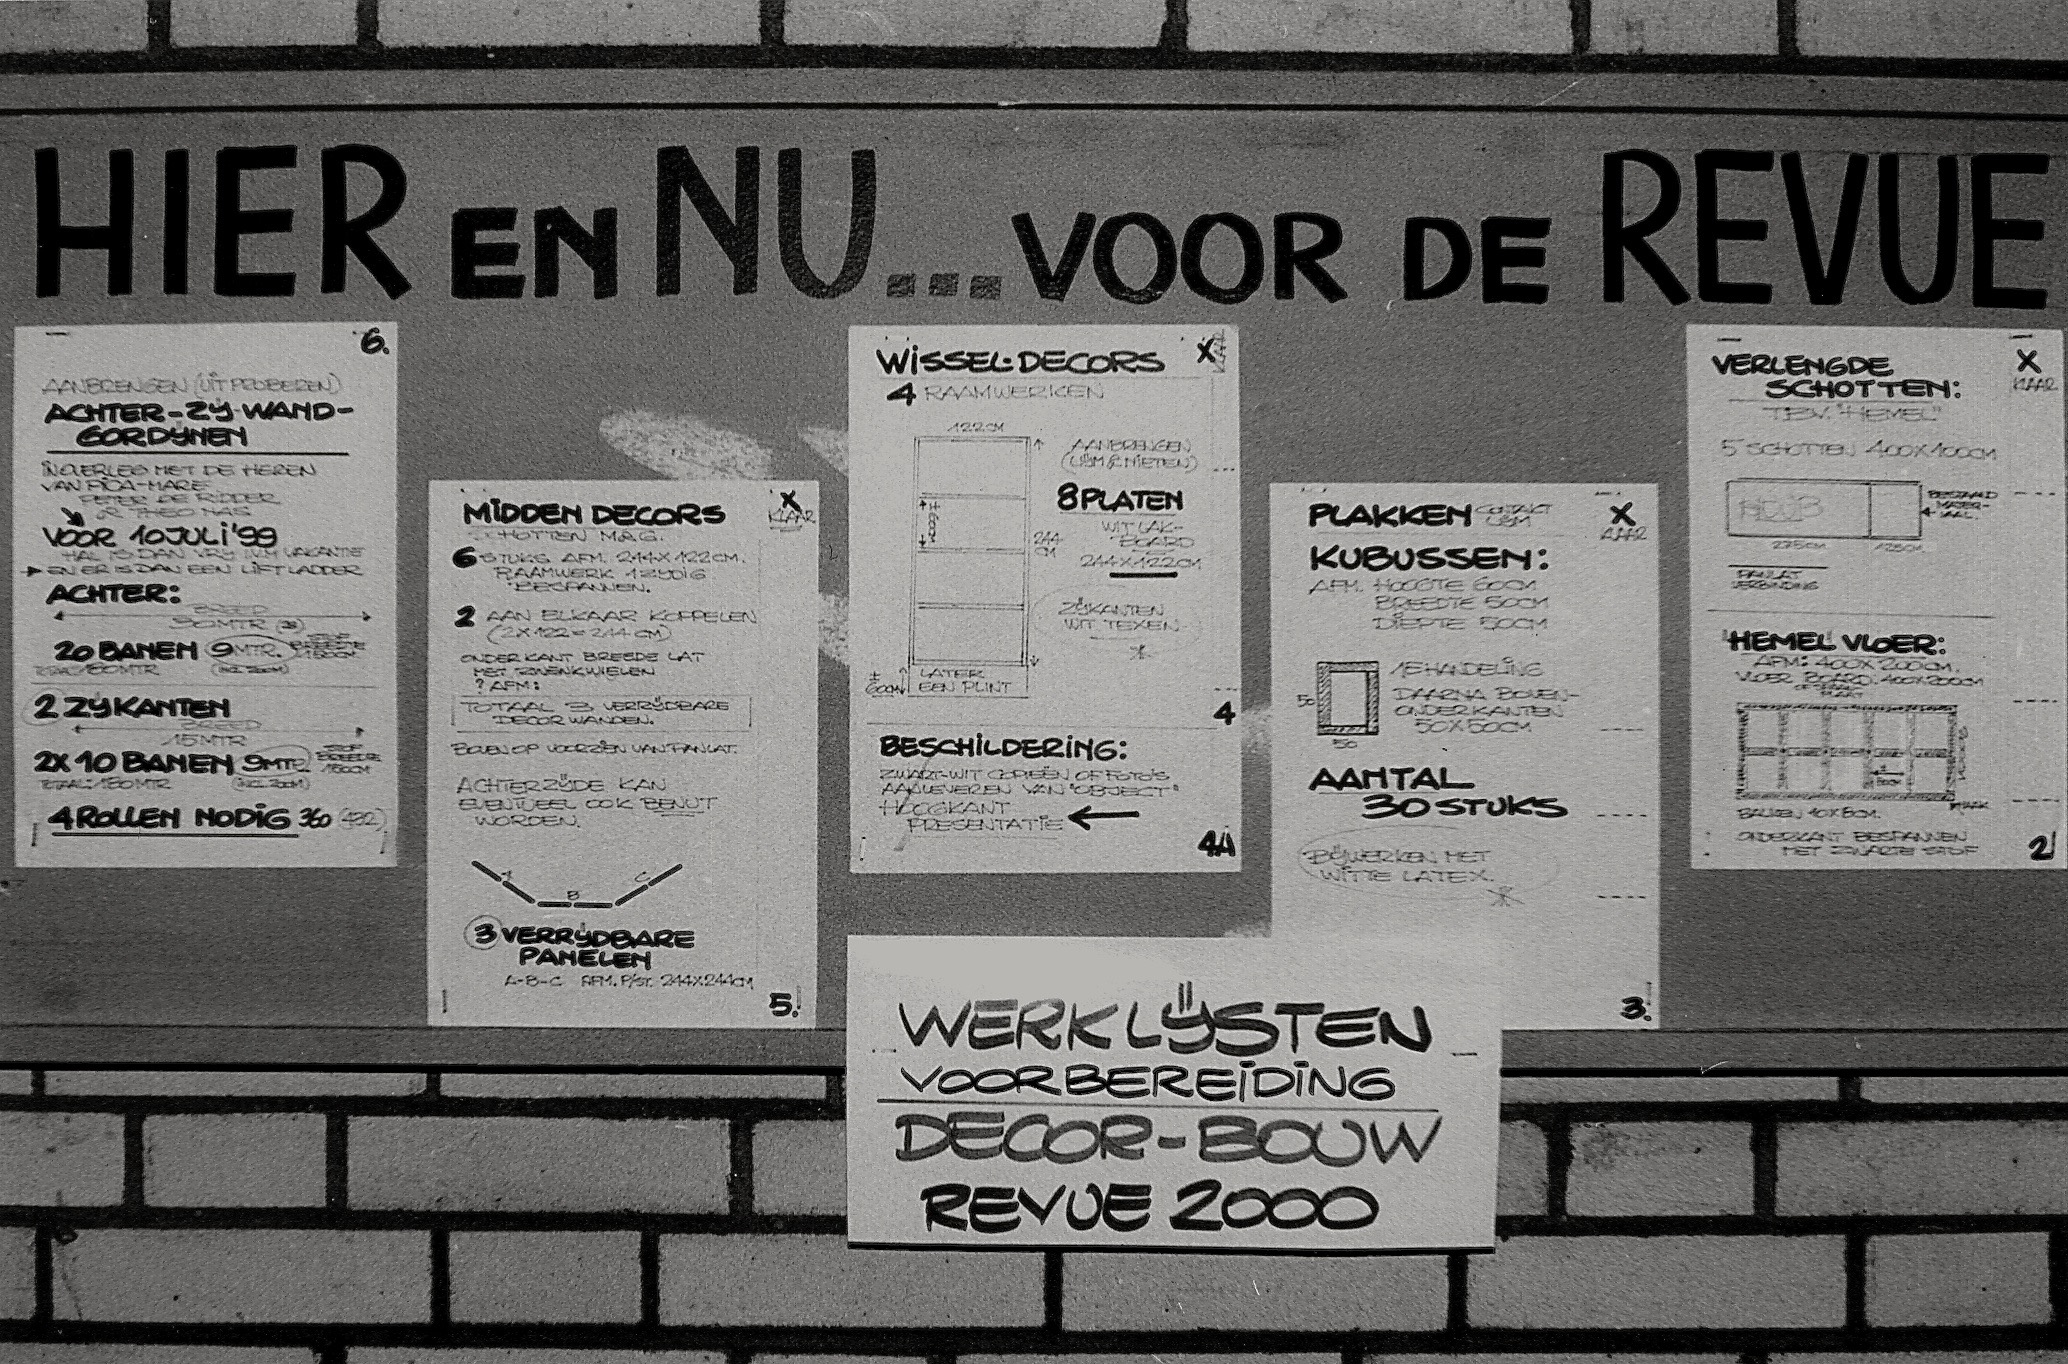 HIER EN NU... VOOR DE REVUE
6.
AANBRENGEN (UIT PROBEREN)
ACHTER-ZIJ-WAND-
GORDIJNEN
IN OVERLEG MET DE HEREN
PETER DE RIDDER
VOOR 10 JULI '99
HAL IS DAN VRIJ I.V.M. VAKANTIE
EN ER IS DAN EEN LIFTLADDER
ACHTER:
BREED
30 MTR
20 BANEN 9 MTR.
2 ZIJKANTEN
BREED
15 MTR
2X 10 BANEN 9 MTR
4 ROLLEN NODIG 360 (432)
MIDDEN DECORS X
KLAAR
SCHOTTEN
6 STUKS AFM. 244X122CM.
RAAMWERK 1 ZIJDIG
BESPANNEN.
2 AAN ELKAAR KOPPELEN
(2X122=244 CM)
ONDERKANT BREEDE LAT
MET ZWENKWIELEN
? AFM:
TOTAAL 3 VERRIJDBARE
DECORWANDEN.
BOVENOP VOORZIEN VAN PANLAT.
ACHTERZIJDE KAN
EVENTUEEL OOK BENUT
WORDEN.
A B C
3 VERRIJDBARE
PANELEN
A-B-C AFM. P/ST. 244X244CM
5.
WISSEL-DECORS X
4 RAAMWERKEN
122CM
AANBRENGEN
(LIJM & NIETEN)
8 PLATEN
WIT LAK-
BOARD
244X122CM
244
CM
ZIJKANTEN
WIT TEXEN
LATER
EEN PLINT
4
BESCHILDERING:
ZWART-WIT COPIEËN OF FOTO'S
AANLEVEREN VAN "OBJECT"
HOOGKANT
PRESENTATIE
4A
PLAKKEN CONTAKT X
LIJM KLAAR
KUBUSSEN:
AFM. HOOGTE 60CM
BREEDTE 50CM
DIEPTE 50CM
1E HANDELING
DAARNA BOVEN-
ONDERKANTEN
50X50CM
50
50
AANTAL
30 STUKS
BIJWERKEN MET
WITTE LATEX.
3.
VERLENGDE X
SCHOTTEN: KLAAR
T.B.V. "HEMEL"
5 SCHOTTEN 400X100CM
BESTAAND
MATER-
IAAL.
275CM 125CM
PANLAT
VERBINDING
HEMEL VLOER:
AFM: 400X200CM.
VLOER BOARD. 400X200CM
BALKEN 10X5CM.
ONDERKANT BESPANNEN
MET ZWARTE STOF
2
WERKLIJSTEN
VOORBEREIDING
DECOR-BOUW
REVUE 2000